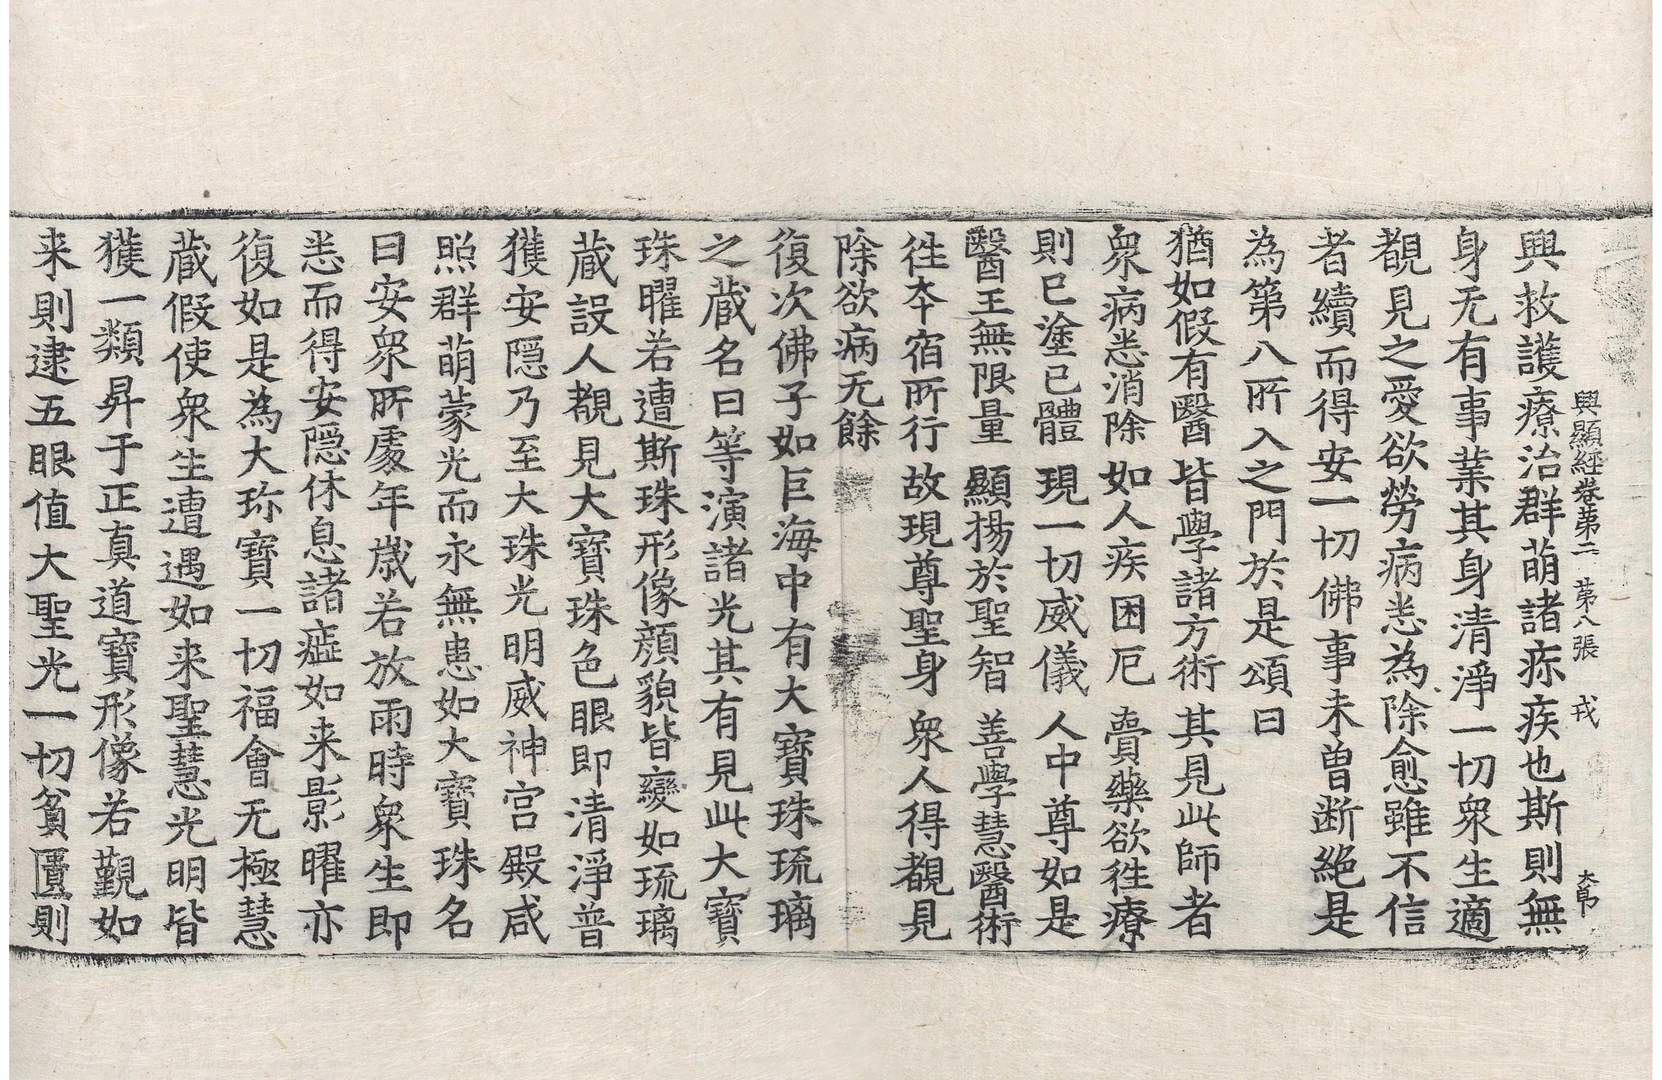 興顯經卷第二 第八張 戎 大昻
興救護療治群萌諸疹疾也斯則無
身无有事業其身清淨一切衆生適
覩見之愛欲勞病悉為除愈雖不信
者續而得安一切佛事未曽断絶是
為第八所入之門於是頌曰
猶如假有醫 皆學諸方術 其見此師者
衆病悉消除 如人疾困厄 賣藥欲徃療
則已塗已體 現一切威儀 人中尊如是
醫王無限量 顯揚於聖智 善學慧醫術
徃夲宿所行 故現尊聖身 衆人得覩見
除欲病无餘
復次佛子如巨海中有大寶珠琉璃
之蔵名曰等演諸光其有見此大寶
珠曜若遭斯珠形像顔貌皆變如琉璃
蔵設人覩見大寶珠色眼即清淨普
獲安隱乃至大珠光明威神宫殿咸
照群萌蒙光而永無患如大寶珠名
曰安衆所處年歲若放雨時衆生即
悉而得安隱休息諸㾏如来影曜亦
復如是為大珎寶一切福會无極慧
蔵假使衆生遭遇如来聖慧光明皆
獲一類昇于正真道寶形像若觀如
来則逮五眼值大聖光一切貧匱則